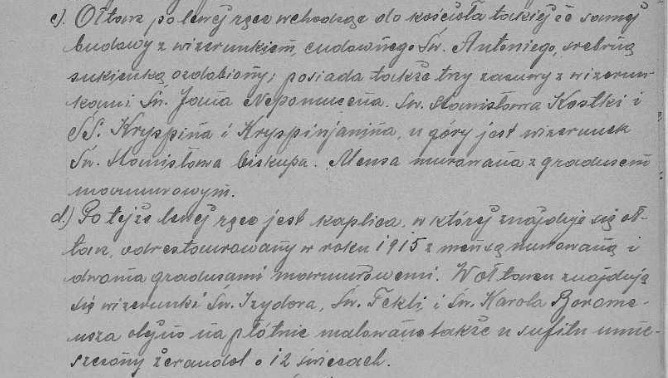 c). Ołtarz po lewej ręce wchodząc do kościoła takiej że samej
budowy z wizerunkiem, cudownego Św. Antoniego, srebrną
sukienką ozdobiony; posiada także trzy zasuwy z wizerun-
kami Św. Jana Nepomucena. Św. Stanisława Kostki i
SS. Kryspina i Kryspinjanina, u góry jest wizerunek
Św. Stanisława biskupa. Mensa murowana z gradusem
marmurowym.
d.) Po tejże lewej ręce jest kaplica, w której znajduje się oł-
tarz, odrestaurowany w roku 1915 z mensą murowaną i
dwoma gradusami marmurowemi. W ołtarzu znajdują
się wizerunki Św. Izydora, Św. Tekli, i Św. Karola Borome-
usza olejno na płótnie malowane także u sufitu umie-
szczony żerandol o 12 świecach.